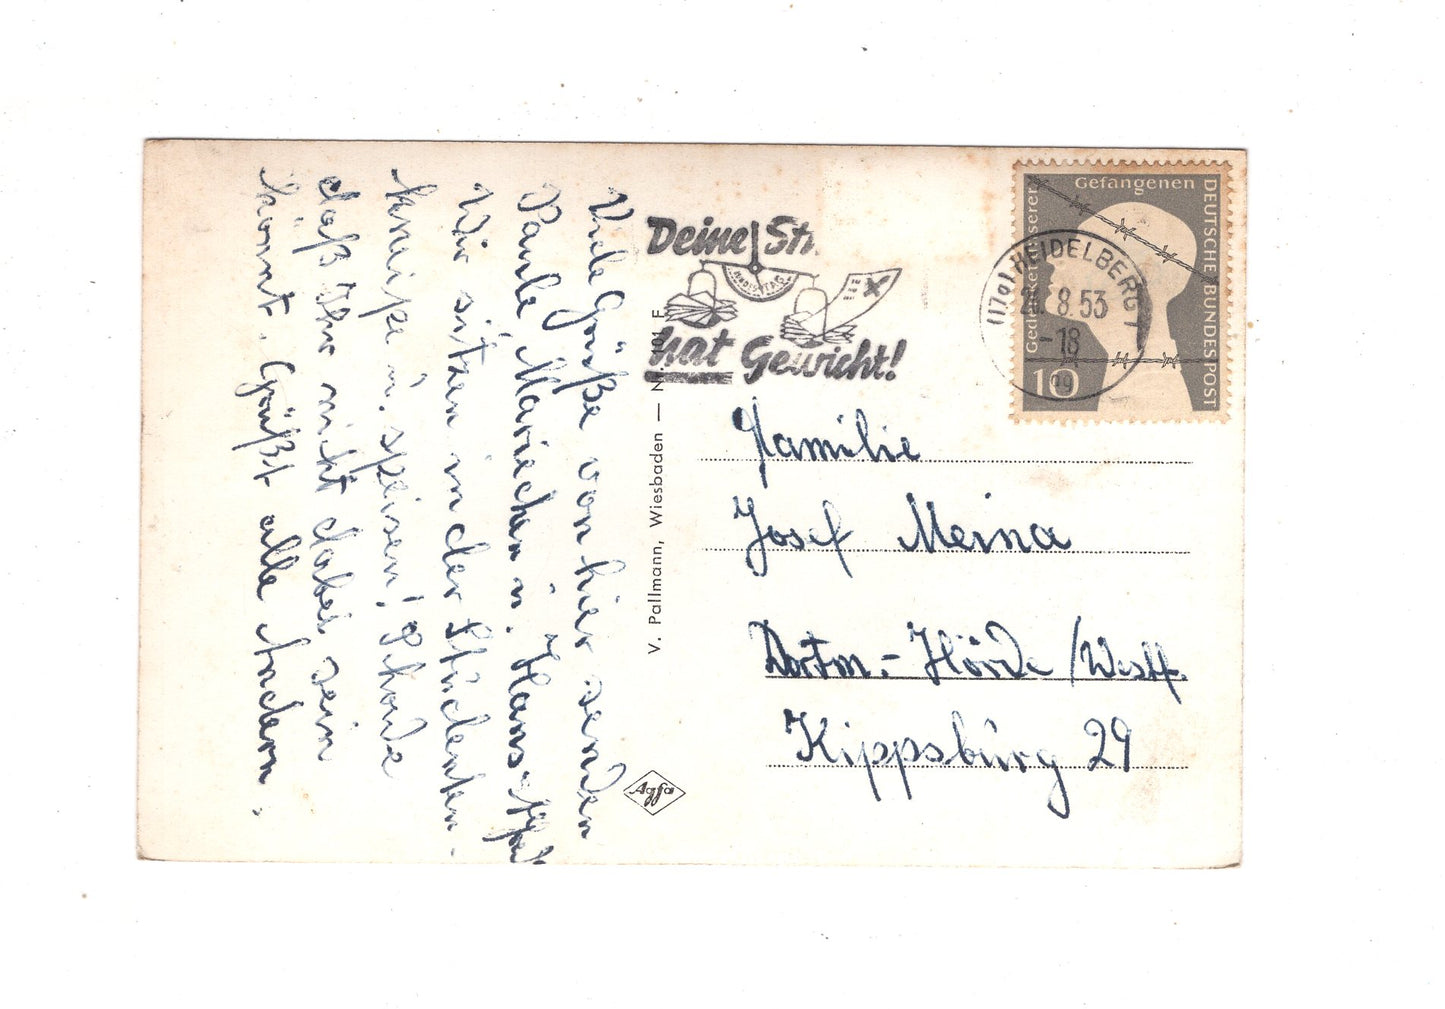 Viele Grüße von hier senden
Paule Mariechen u. Hans-
Wir sitzen in der Studenten
kneipe u. speisen! Schade
daß Ihr nicht dabei sein
könnt. Grüßt alle Andern.
V. Pallmann, Wiesbaden — Nr. 101 F
Agfa
Deine St
BUNDESTAG
hat Gewicht!
(17a) HEIDELBERG 1
8.53
-18
Gedenket unserer Gefangenen
DEUTSCHE BUNDESPOST
10
Familie
Josef Meina
Dortm.- Hörde /Westf.
Kippsburg 29